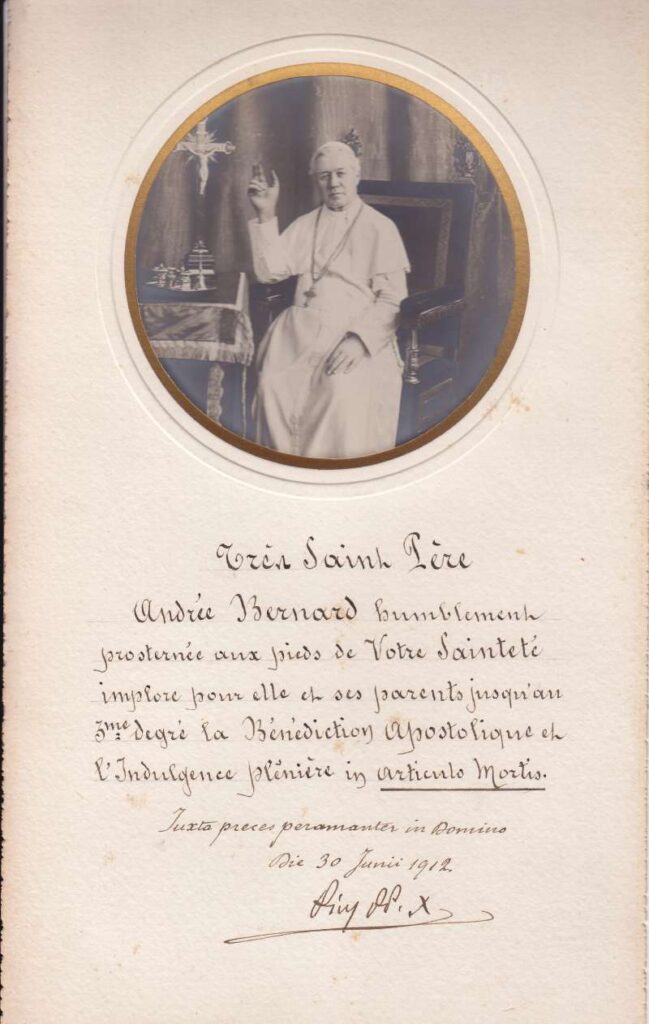 Très Saint Père
Andrée Bernard humblement
prosternée aux pieds de Votre Sainteté
implore pour elle et ses parents jusqu'au
3me degré la Bénédiction Apostolique et
l'Indulgence plénière in Articulo Mortis.
Juxta preces peramanter in Domino
Die 30 Junii 1912.
Pius PP. X